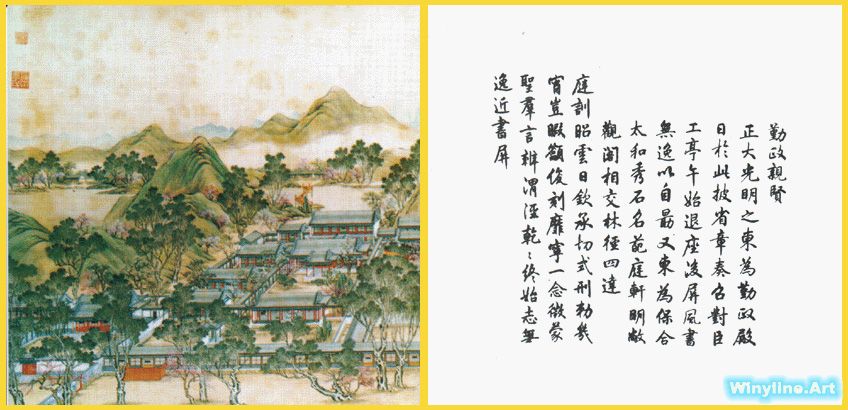 勤政親賢
正大光明之東為勤政殿
日於此披省章奏召對臣
工亭午始退座後屏風書
無逸以自勗又東為保合
太和秀石名葩庭軒明敞
觀閣相交林徑四達
庭訓昭雲日欽承切式刑勅幾
宵豈暇籲俊刻靡寧一念微蒙
聖羣言辨渭涇乾〻終始志無
逸近書屏
Winyline.Art